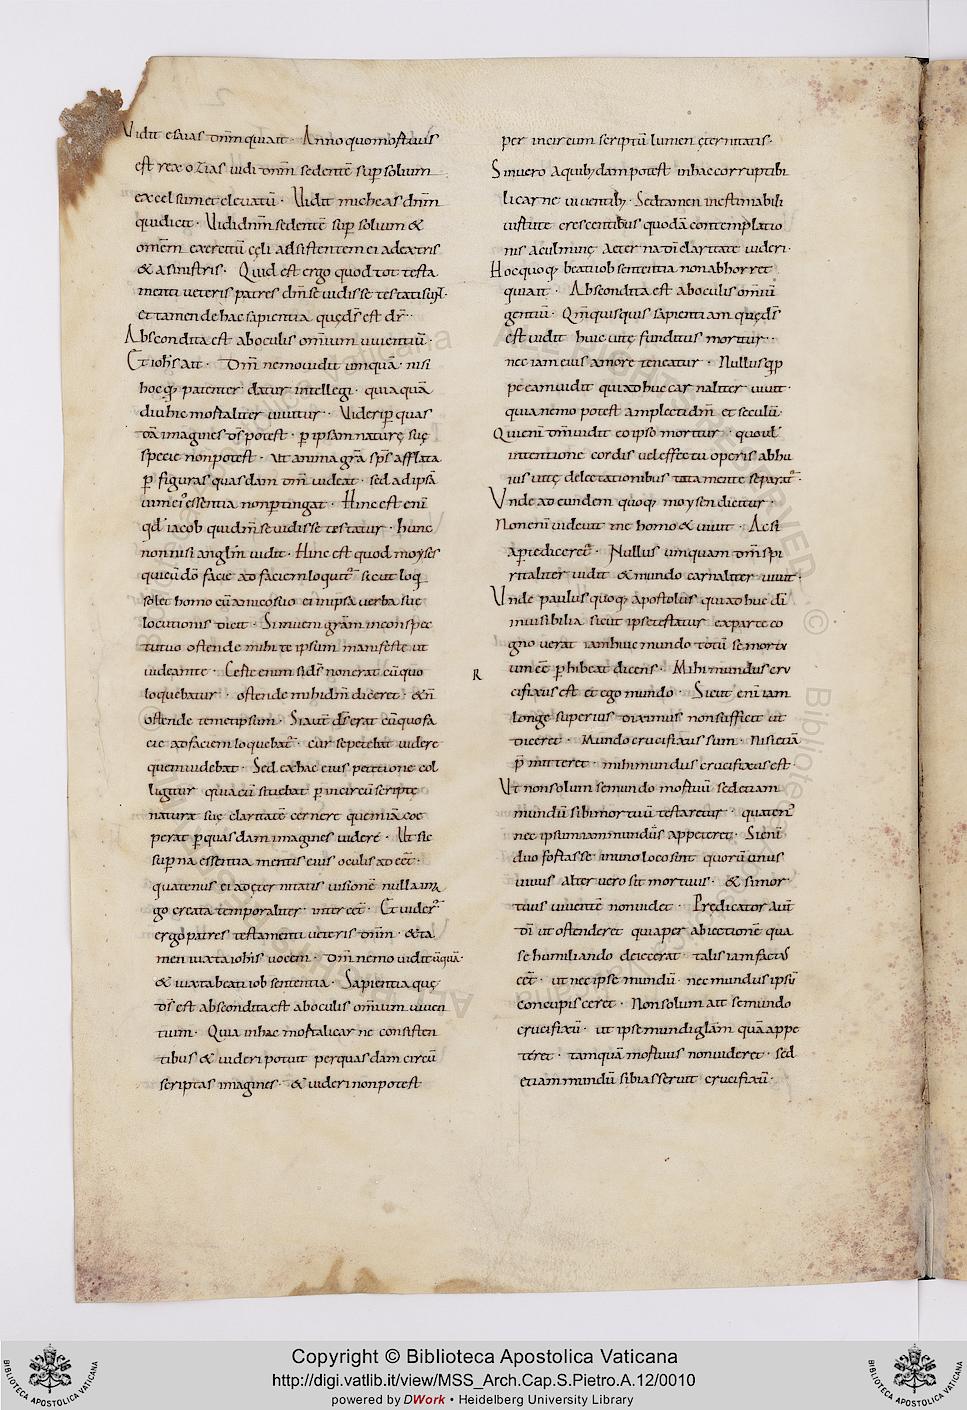 Vidit esaias dn̄m qui ait · Anno quo mortuus
est rex ozias vidi dn̄m sedentē sup̄ solium
excelsum et elevatū · Vidit micheas dn̄m
qui dicit · Vidi dn̄m sedentē sup̄ solium &
om̄em exercitū cęli adsistentem ei a dextris
& a sinistris · Quid est ergo quod tot testa
menti veteris patres dm̄ se vidisse testati sunt·
et tamen de hac sapientia quę ds̄ est dr̄ ·
Abscondita est ab oculis omium viventiū ·
Et ioh̄s ait · Dm̄ nemo vidit umquā · nisi
hoc q̨ patenter datur intellegi · quia quā
diu hic mortaliter vivitur · Videri p̄ quas
dā imagines ds̄ potest · p̄ ipsam naturę suę
speciē non potest · ut anima gr̄a sp̄s afflata
p̄ figuras quasdam dm̄ videat · sed ad ipsā
vim ei' essentia non p̄tingat · Hinc est enī
qd̄ iacob qui dm̄ se vidisse testatur · hunc
non nisi anglm̄ vidit · Hinc est quod moyses
qui cū dō facie ad faciem loquit̄ sicut loq̄
solet homo cū amico suo ei in ipsa verba suę
locutionis dicit · Si inveni gr̄am in conspec
tu tuo ostende mihi te ipsum manifeste ut
videam te · Certe enim si ds̄ non erat cū quo
loquebatur · ostende mihi dm̄ diceret · & n̄
ostende temetipsum · Si aut̄ ds̄ erat cū quo fa
cie ad faciem loquebat̄ · cur se petebat videre
quem videbat · Sed ex hac eius petitione col
ligitur · quia eū sitiebat p̄ incircū scriptę
naturę suę claritatē cernere quem iā coe
perat p̄ quasdam imagines videre · Ut sic
sup̄na essentia mentis eius oculis adeēt ·
quatenus ei ad ęternitatis visionē nulla ima
go creata temporaliter inter eēt · Et vider̄
ergo patres testamenti veteris dn̄m · & ta
men iuxta ioh̄is vocem · dm̄ nemo vidit ūquā·
& iuxta beati iob sententia · Sapientia quę
ds̄ est abscondita est ab oculis om̄ium viven
tium · Quia in hac mortali carne consisten
tibus & videri potuit per quasdam circū
scriptas imagines · & videri non potest
per incircumscriptū lumen ęternitatis·
Sin vero a quibusdam potest in hac corruptibi
li carne viventib; · Sed tamen inestimabili
virtute crescentibus quodā contemplatio
nis aculminę aeterna dī claritate videri·
Hoc quoq; beati iob sententia non abhorret
qui ait · Abscondita est ab oculis om̄iū
gentiū · Qm̄ quisquis sapientiam quę ds̄
est vidit huic vitę funditus moritur ·
nec iam eius amore teneatur · Nullus q̄p
pe eam vidit qui adhuc carnaliter vivit·
quia nemo potest amplecti dm̄ et seculū·
Qui enī dm̄ vidit eo ipso moritur · quo ul̄
intentione cordis vel effectu operis ab hu
ius vitę delectationibus tota mente separat̄·
Unde ad eundem quoq; moysen dicitur ·
Non enī videvit me homo & vivit · Ac si
ap̄te diceret̄ · Nullus umquam dm̄ spi
ritaliter vidit & mundo carnaliter vivit ·
Unde paulus quoq; apostolus qui adhuc dī
invisibilia sicut ipse testatur ex parte co
gnoverat iam huic mundo totū se mortu
um eē p̄hibeat dicens · Mihi mundus cru
cifixus est et ego mundo · Sicut enī iam
R
longe superius diximus non sufficit ut
diceret · Mundo crucifixus sum · nisi etiā
p̄mitteret · mihi mundus crucifixus est ·
Ut non solum se mundo mortuū sed etiam
mundū sibi mortuū testaretur · quaten̄
nec ipsum iam mundus appeteret · Si enī
duo fortasse in uno loco sint quorū unus
vivus alter vero sit mortuus · & si mor
tuus viventē non videt · Predicator aut̄
dī ut ostenderet quia per abiectionē qua
se humiliando deiecerat talis iam factus
eēt · ut nec ipse mundū · nec mundus ipsū
concupisceret · Non solum ait se mundo
crucifixū · ut ipse mundi glām quā appe
teret · tamquā mortuus non videret · sed
etiam mundū sibi asseruit crucifixū ·
Copyright © Biblioteca Apostolica Vaticana
http://digi.vatlib.it/view/MSS_Arch.Cap.S.Pietro.A.12/0010
powered by DWork • Heidelberg University Library